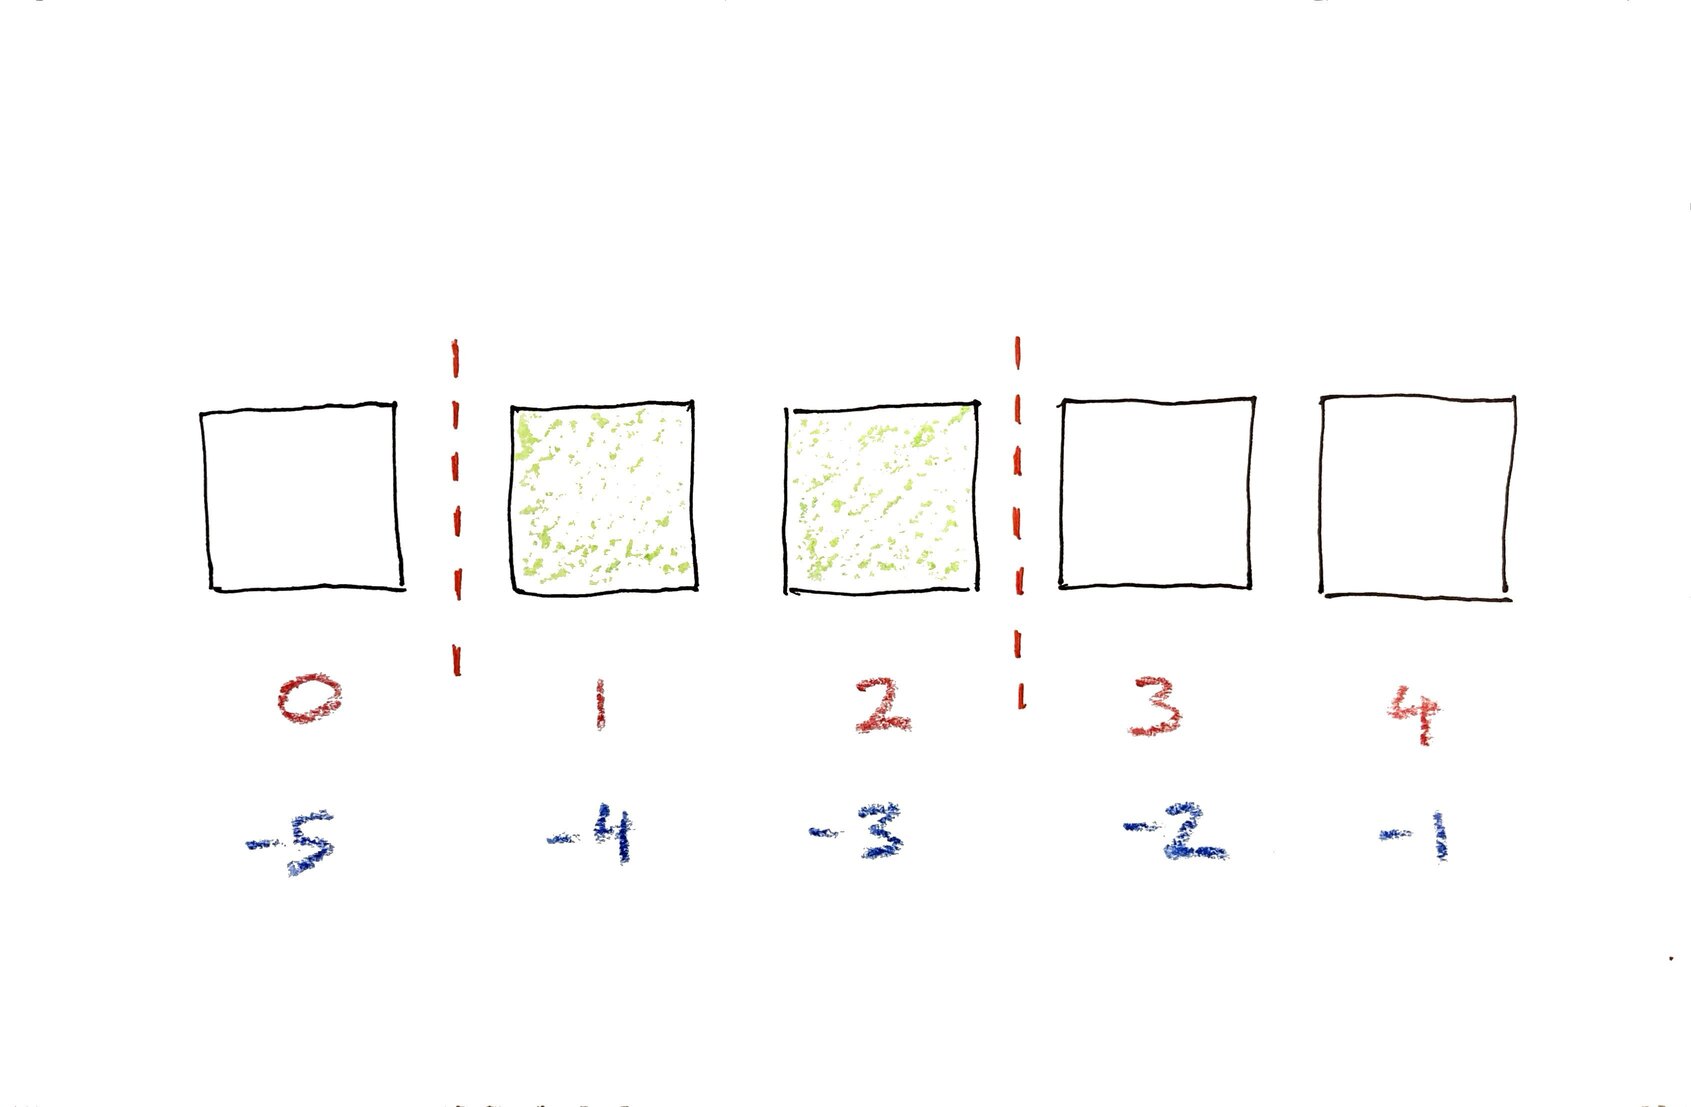 0 1 2 3 4
-5 -4 -3 -2 -1